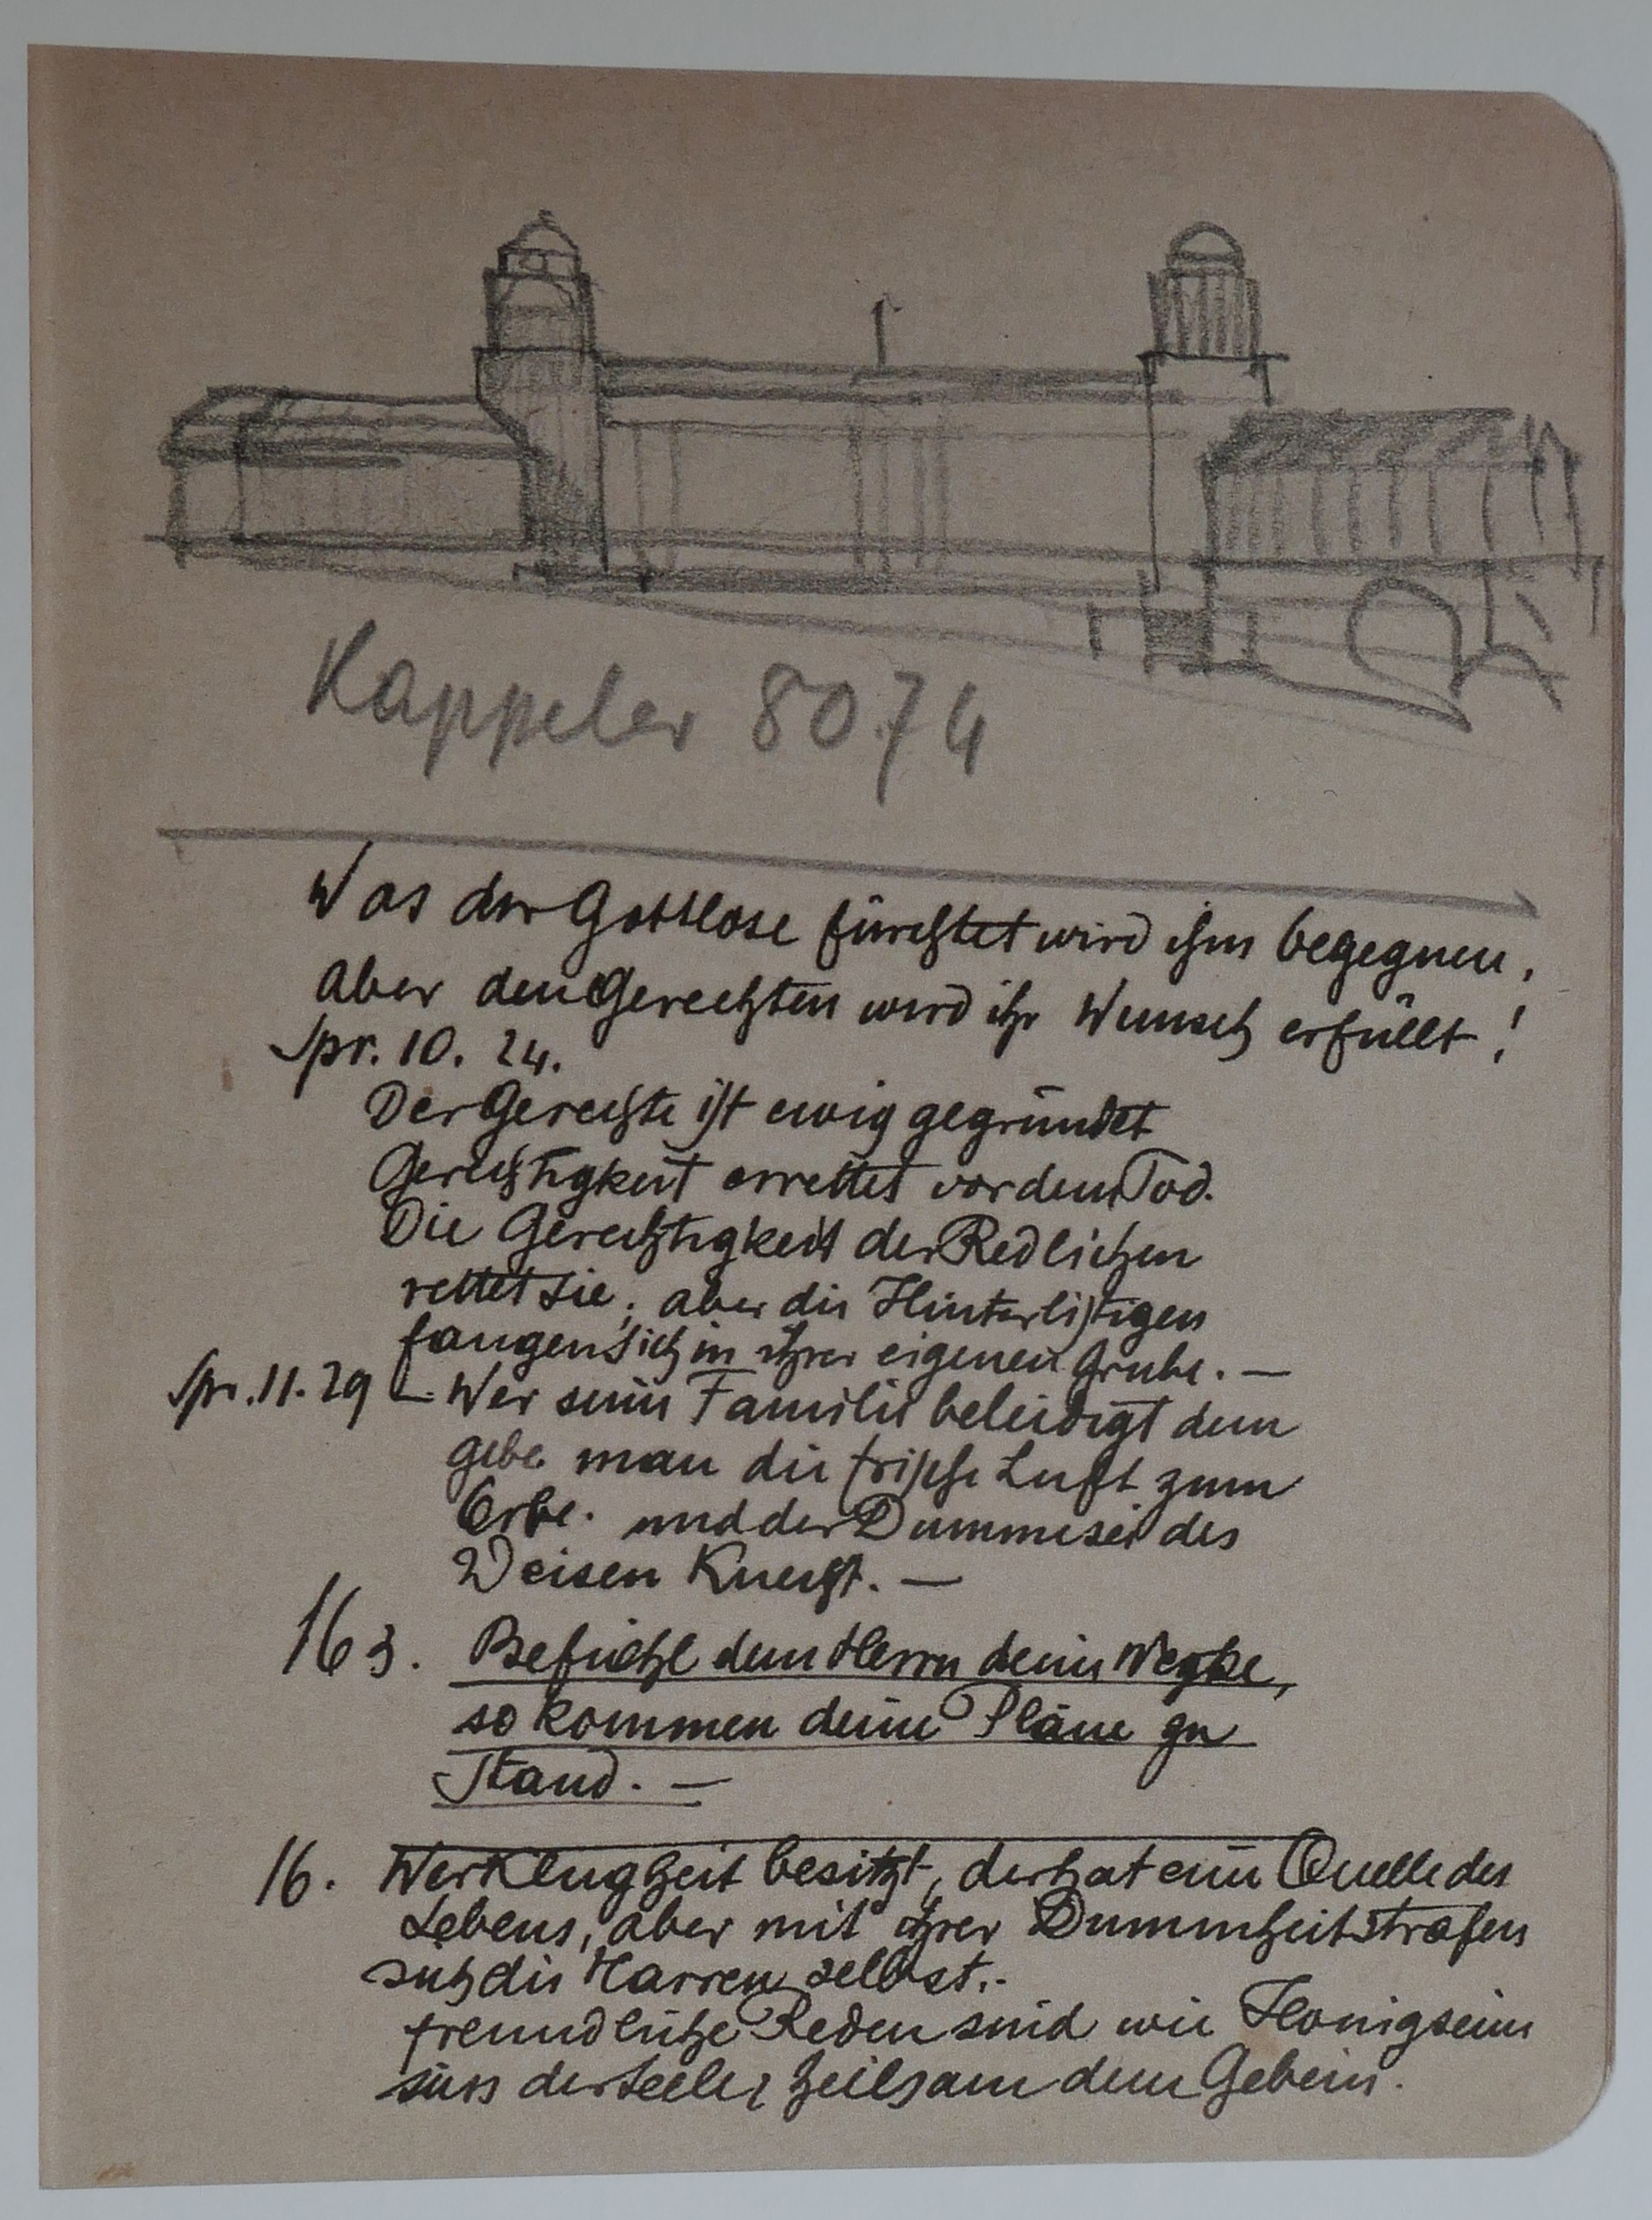 Kappeler 8074
Was der Gottlose fürchtet wird ihm begegnen,
aber den Gerechten wird ihr Wunsch erfüllt!
Spr. 10. 24.
Der Gerechte ist ewig gegründet
Gerechtigkeit errettet vor dem Tod.
Die Gerechtigkeit der Redlichen
rettet sie; aber die Hinterlistigen
fangen sich in ihrer eigenen Grube. —
Spr. 11. 29 — Wer seine Familie beleidigt dem
gebe man die frische Luft zum
Erbe. und der Dumme sei des
Weisen Knecht. —
16 3. Befiehl dem Herrn deine Werke,
so kommen deine Pläne zu
Stand. —
16. Wer Klugheit besitzt, der hat eine Quelle des
Lebens, aber mit ihrer Dummheit strafen
sich die Narren selbst.
freundliche Reden sind wie Honigseim
süss der Seele, heilsam dem Gebein.